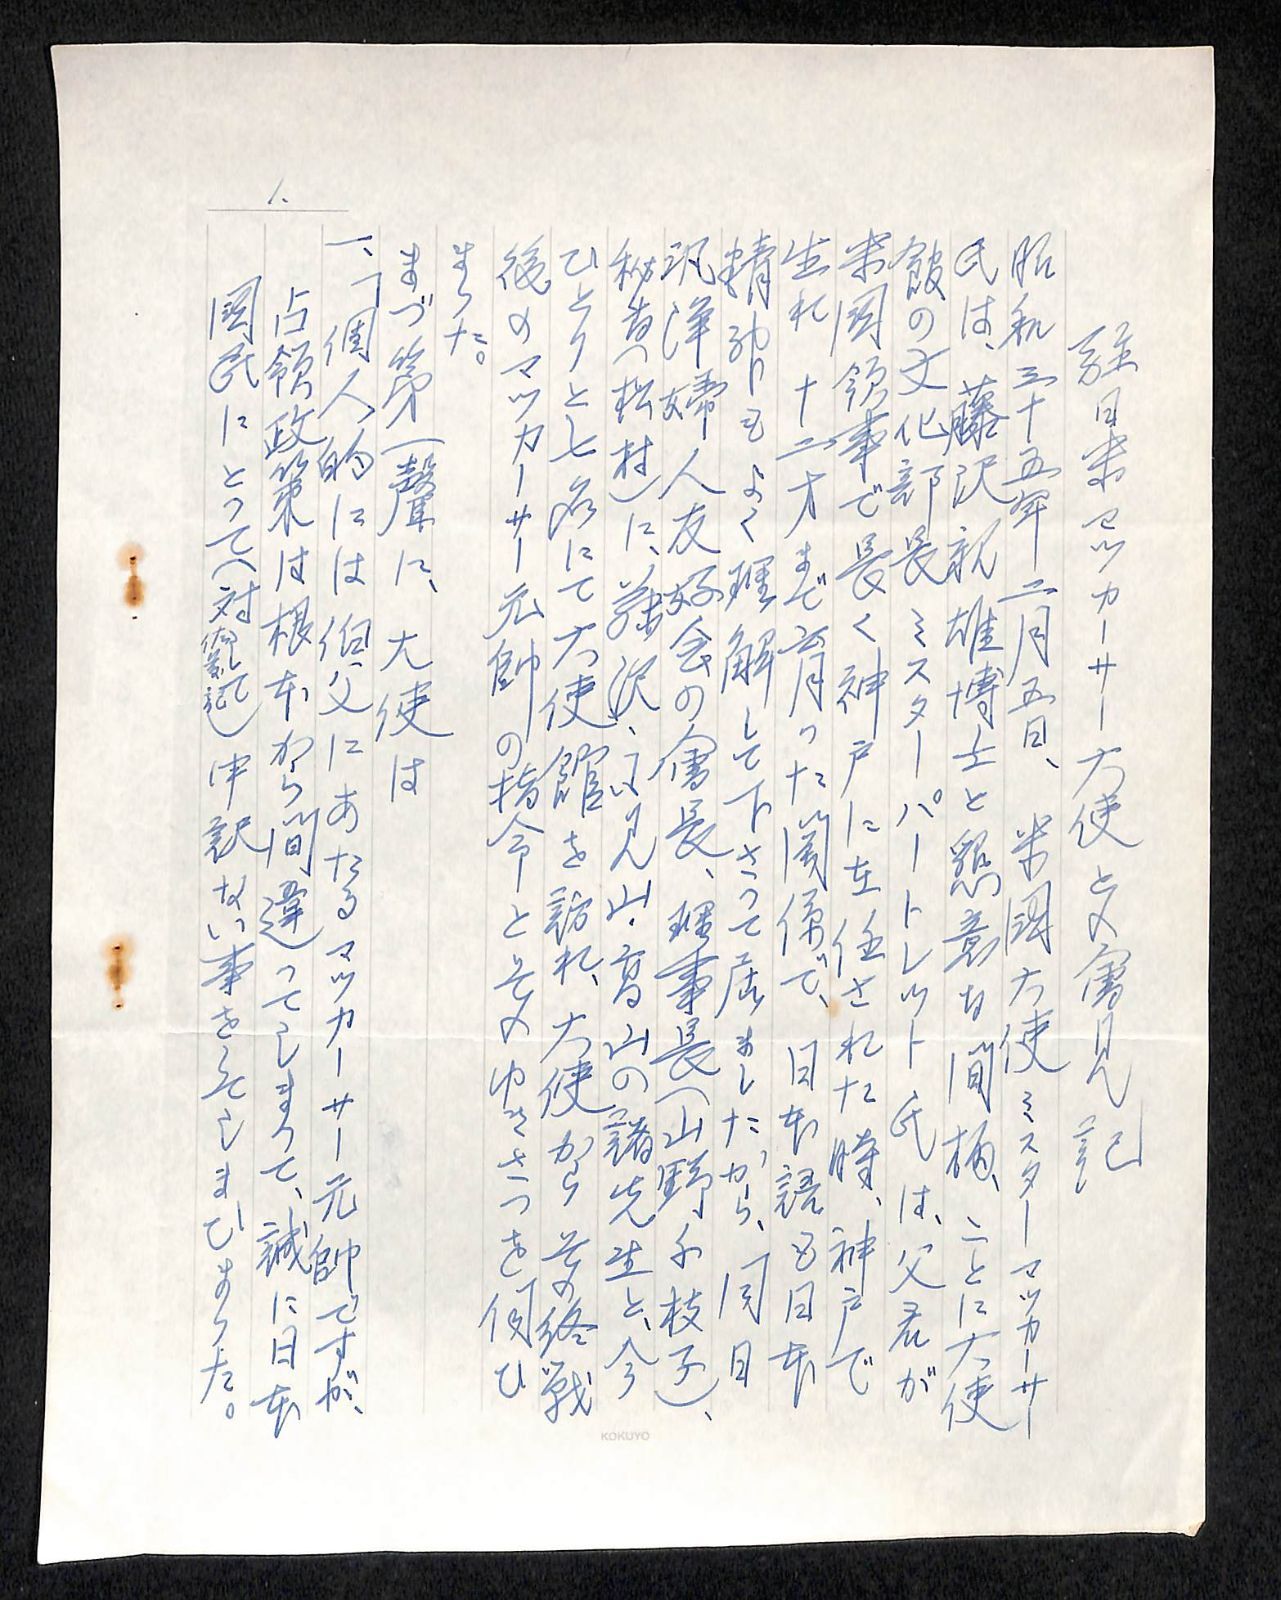 駐日米マッカーサー大使との會見記
昭和三十五年二月五日、米國大使ミスターマッカーサー
氏は、藤沢親雄博士と懇意な間柄、ことに大使
館の文化部長ミスターバートレット氏は、父君が
米國領事で長く神戸に在任された時、神戸で
生れ十二才まで育った関係で、日本語も日本
精神もよく理解して下さって居ましたから、同日
汎洋婦人友好会の會長、理事長(山野千枝子)、
秘書(松村)に、藤沢、高山の諸先生と、今
ひとりと七名にて大使館を訪れ、大使からその終戦
後のマッカーサー元帥の指令とそのゆきさつを伺ひ
ました。
まづ第一聲に、大使は
一、「個人的には伯父にあたるマッカーサー元帥ですが、
占領政策は根本から間違ってしまって、誠に日本
國民にとって(対して)申訳ない事をしてしまひました。
1.
KOKUYO